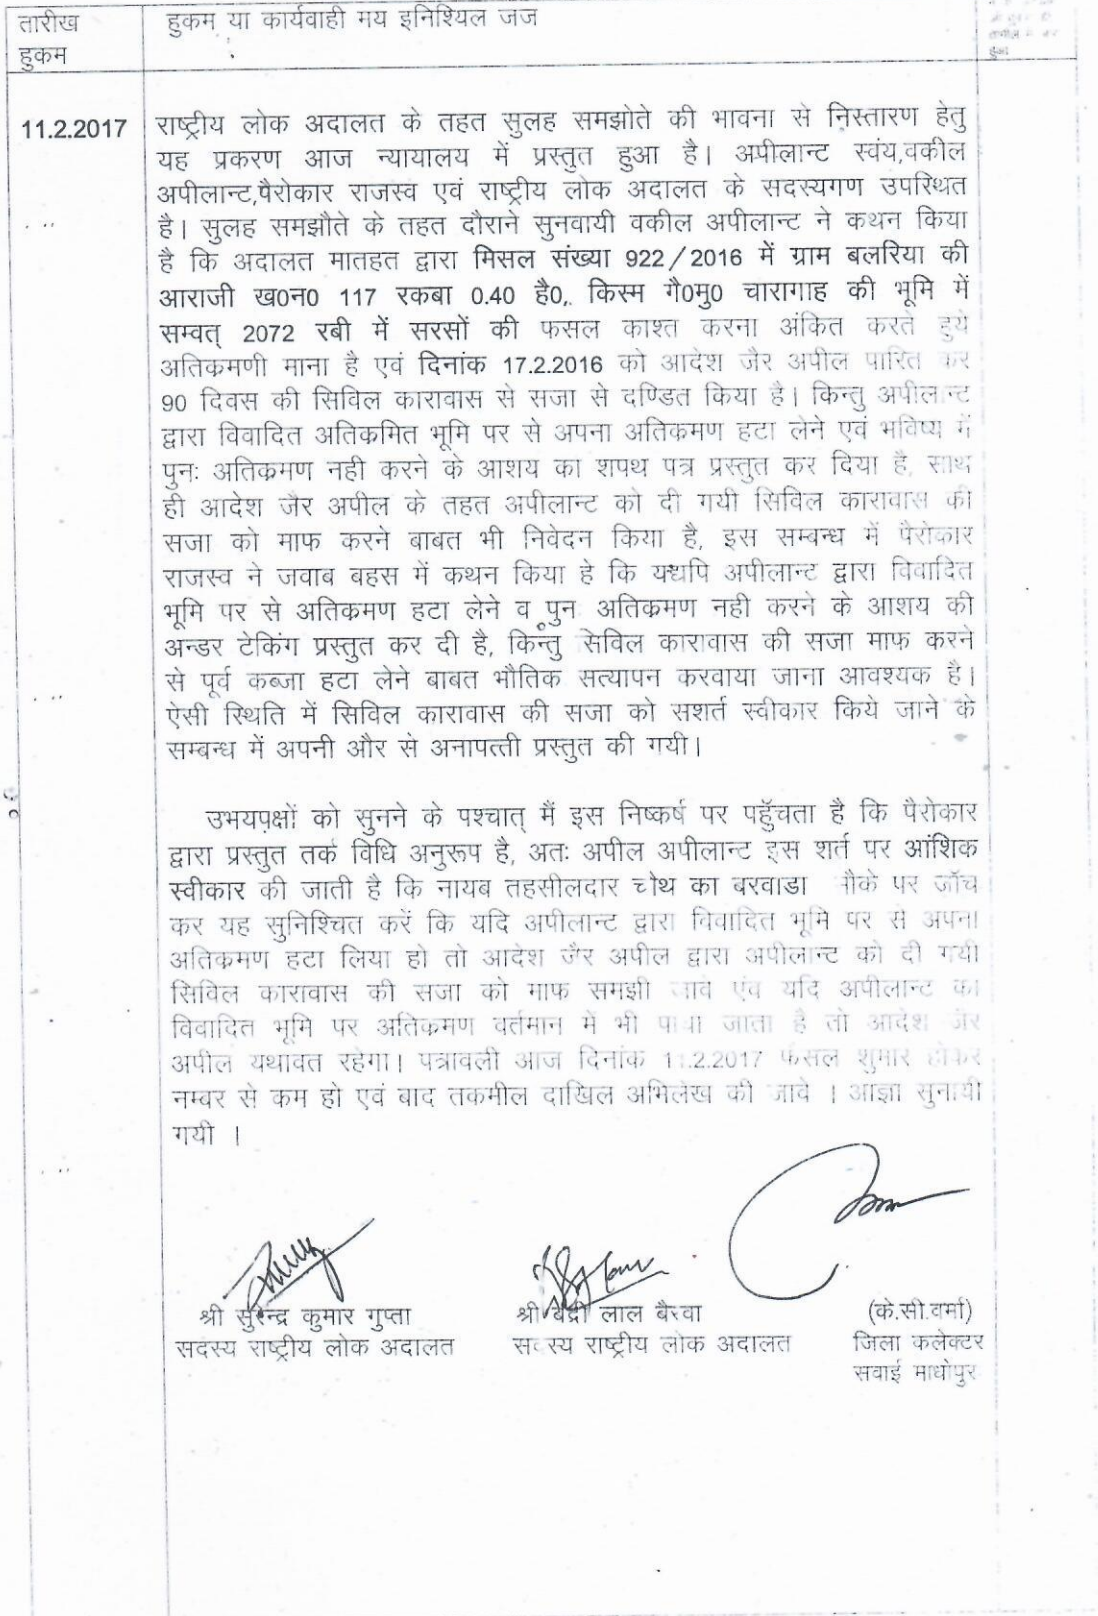 तारीख
हुकम
हुकम या कार्यवाही मय इनिश्यिल जज
11.2.2017
राष्ट्रीय लोक अदालत के तहत सुलह समझोते की भावना से निस्तारण हेतु
यह प्रकरण आज न्यायालय में प्रस्तुत हुआ है। अपीलान्ट स्वंय,वकील
अपीलान्ट,पैरोकार राजस्व एवं राष्ट्रीय लोक अदालत के सदस्यगण उपस्थित
है। सुलह समझौते के तहत दौराने सुनवायी वकील अपीलान्ट ने कथन किया
है कि अदालत मातहत द्वारा मिसल संख्या 922/2016 में ग्राम बलरिया की
आराजी ख0न0 117 रकबा 0.40 है0, किस्म गै0मु0 चारागाह की भूमि में
सम्वत् 2072 रबी में सरसों की फसल काश्त करना अंकित करते हुये
अतिकमणी माना है एवं दिनांक 17.2.2016 को आदेश जैर अपील पारित कर
90 दिवस की सिविल कारावास से सजा से दण्डित किया है। किन्तु अपीलान्ट
द्वारा विवादित अतिकमित भूमि पर से अपना अतिकमण हटा लेने एवं भविष्य में
पुनः अतिकमण नही करने के आशय का शपथ पत्र प्रस्तुत कर दिया है, साथ
ही आदेश जैर अपील के तहत अपीलान्ट को दी गयी सिविल कारावास की
सजा को माफ करने बाबत भी निवेदन किया है, इस सम्बन्ध में पैरोकार
राजस्व ने जवाब बहस में कथन किया हे कि यद्यपि अपीलान्ट द्वारा विवादित
भूमि पर से अतिकमण हटा लेने व पुन अतिकमण नही करने के आशय की
अन्डर टेकिंग प्रस्तुत कर दी है, किन्तु सिविल कारावास की सजा माफ करने
से पूर्व कब्जा हटा लेने बाबत भौतिक सत्यापन करवाया जाना आवश्यक है।
ऐसी स्थिति में सिविल कारावास की सजा को सशर्त स्वीकार किये जाने के
सम्बन्ध में अपनी और से अनापत्ती प्रस्तुत की गयी।
उभयपक्षों को सुनने के पश्चात् मैं इस निष्कर्ष पर पहुँचता है कि पैरोकार
द्वारा प्रस्तुत तर्क विधि अनुरूप है, अतः अपील अपीलान्ट इस शर्त पर आंशिक
स्वीकार की जाती है कि नायब तहसीलदार चोथ का बरवाडा मौके पर जॉच
कर यह सुनिश्चित करें कि यदि अपीलान्ट द्वारा विवादित भूमि पर से अपना
अतिकमण हटा लिया हो तो आदेश जैर अपील द्वारा अपीलान्ट को दी गयी
सिविल कारावास की सजा को माफ समझी जावे एंव यदि अपीलान्ट का
विवादित भूमि पर अतिकमण वर्तमान में भी पाया जाता है तो आदेश जैर
अपील यथावत रहेगा। पत्रावली आज दिनांक 11.2.2017 फैसल शुमार होकर
नम्बर से कम हो एवं बाद तकमील दाखिल अभिलेख की जावे । आज्ञा सुनायी
गयी ।
श्री सुरेन्द्र कुमार गुप्ता
सदस्य राष्ट्रीय लोक अदालत
श्री बद्री लाल बैरवा
सदस्य राष्ट्रीय लोक अदालत
(के.सी.वर्मा)
जिला कलेक्टर
सवाई माधोपुर